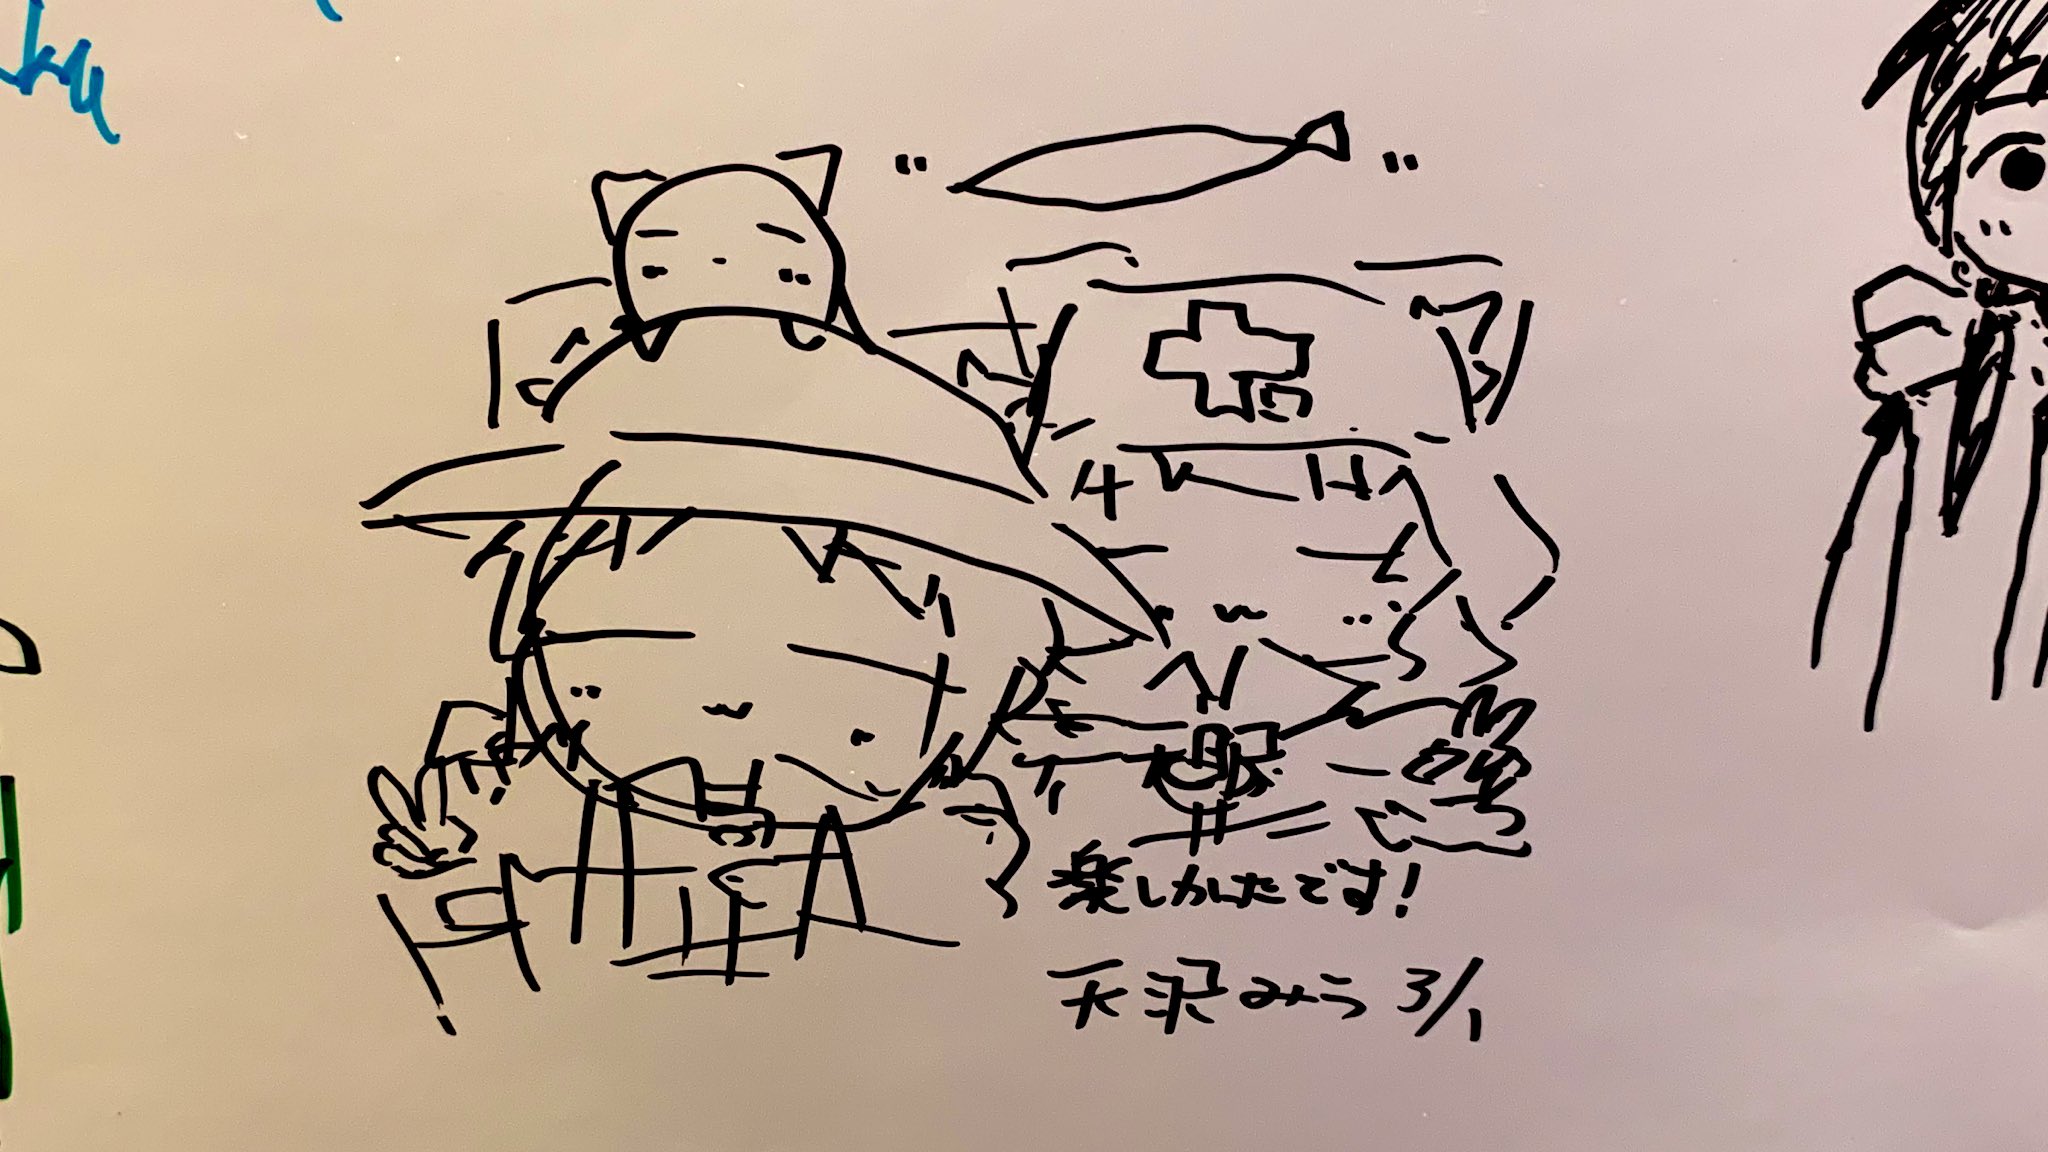 ku
楽しかったです!
天沢みう 3/1